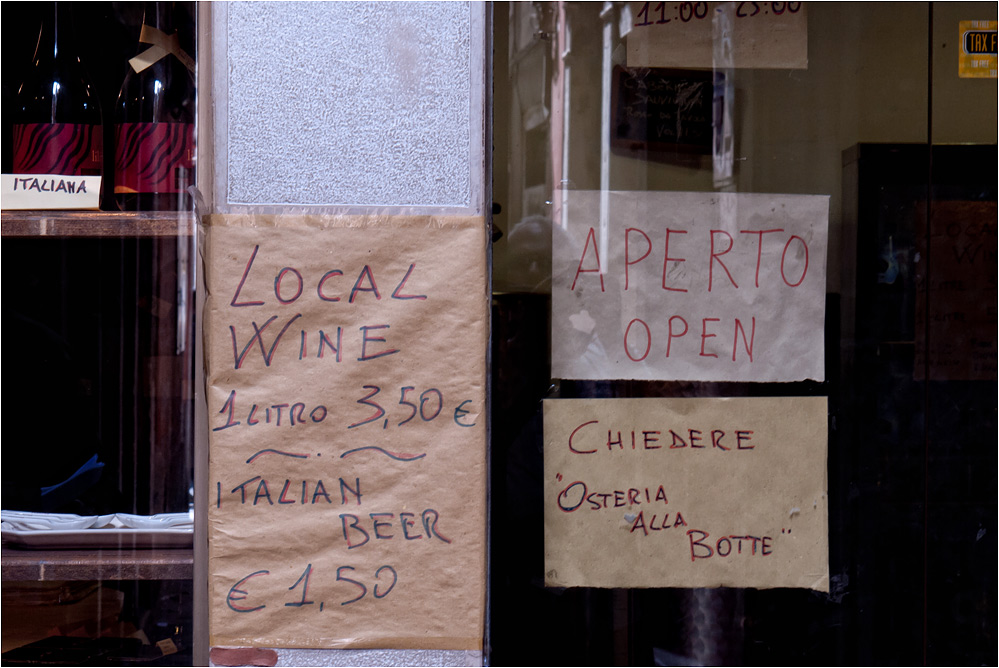 ITALIANA
LOCAL
WINE
1 LITRO 3,50 €
ITALIAN
BEER
€ 1,50
11:00 - 23:00
APERTO
OPEN
CHIEDERE
"OSTERIA
ALLA
BOTTE"
TAX F
LOCAL
WIN